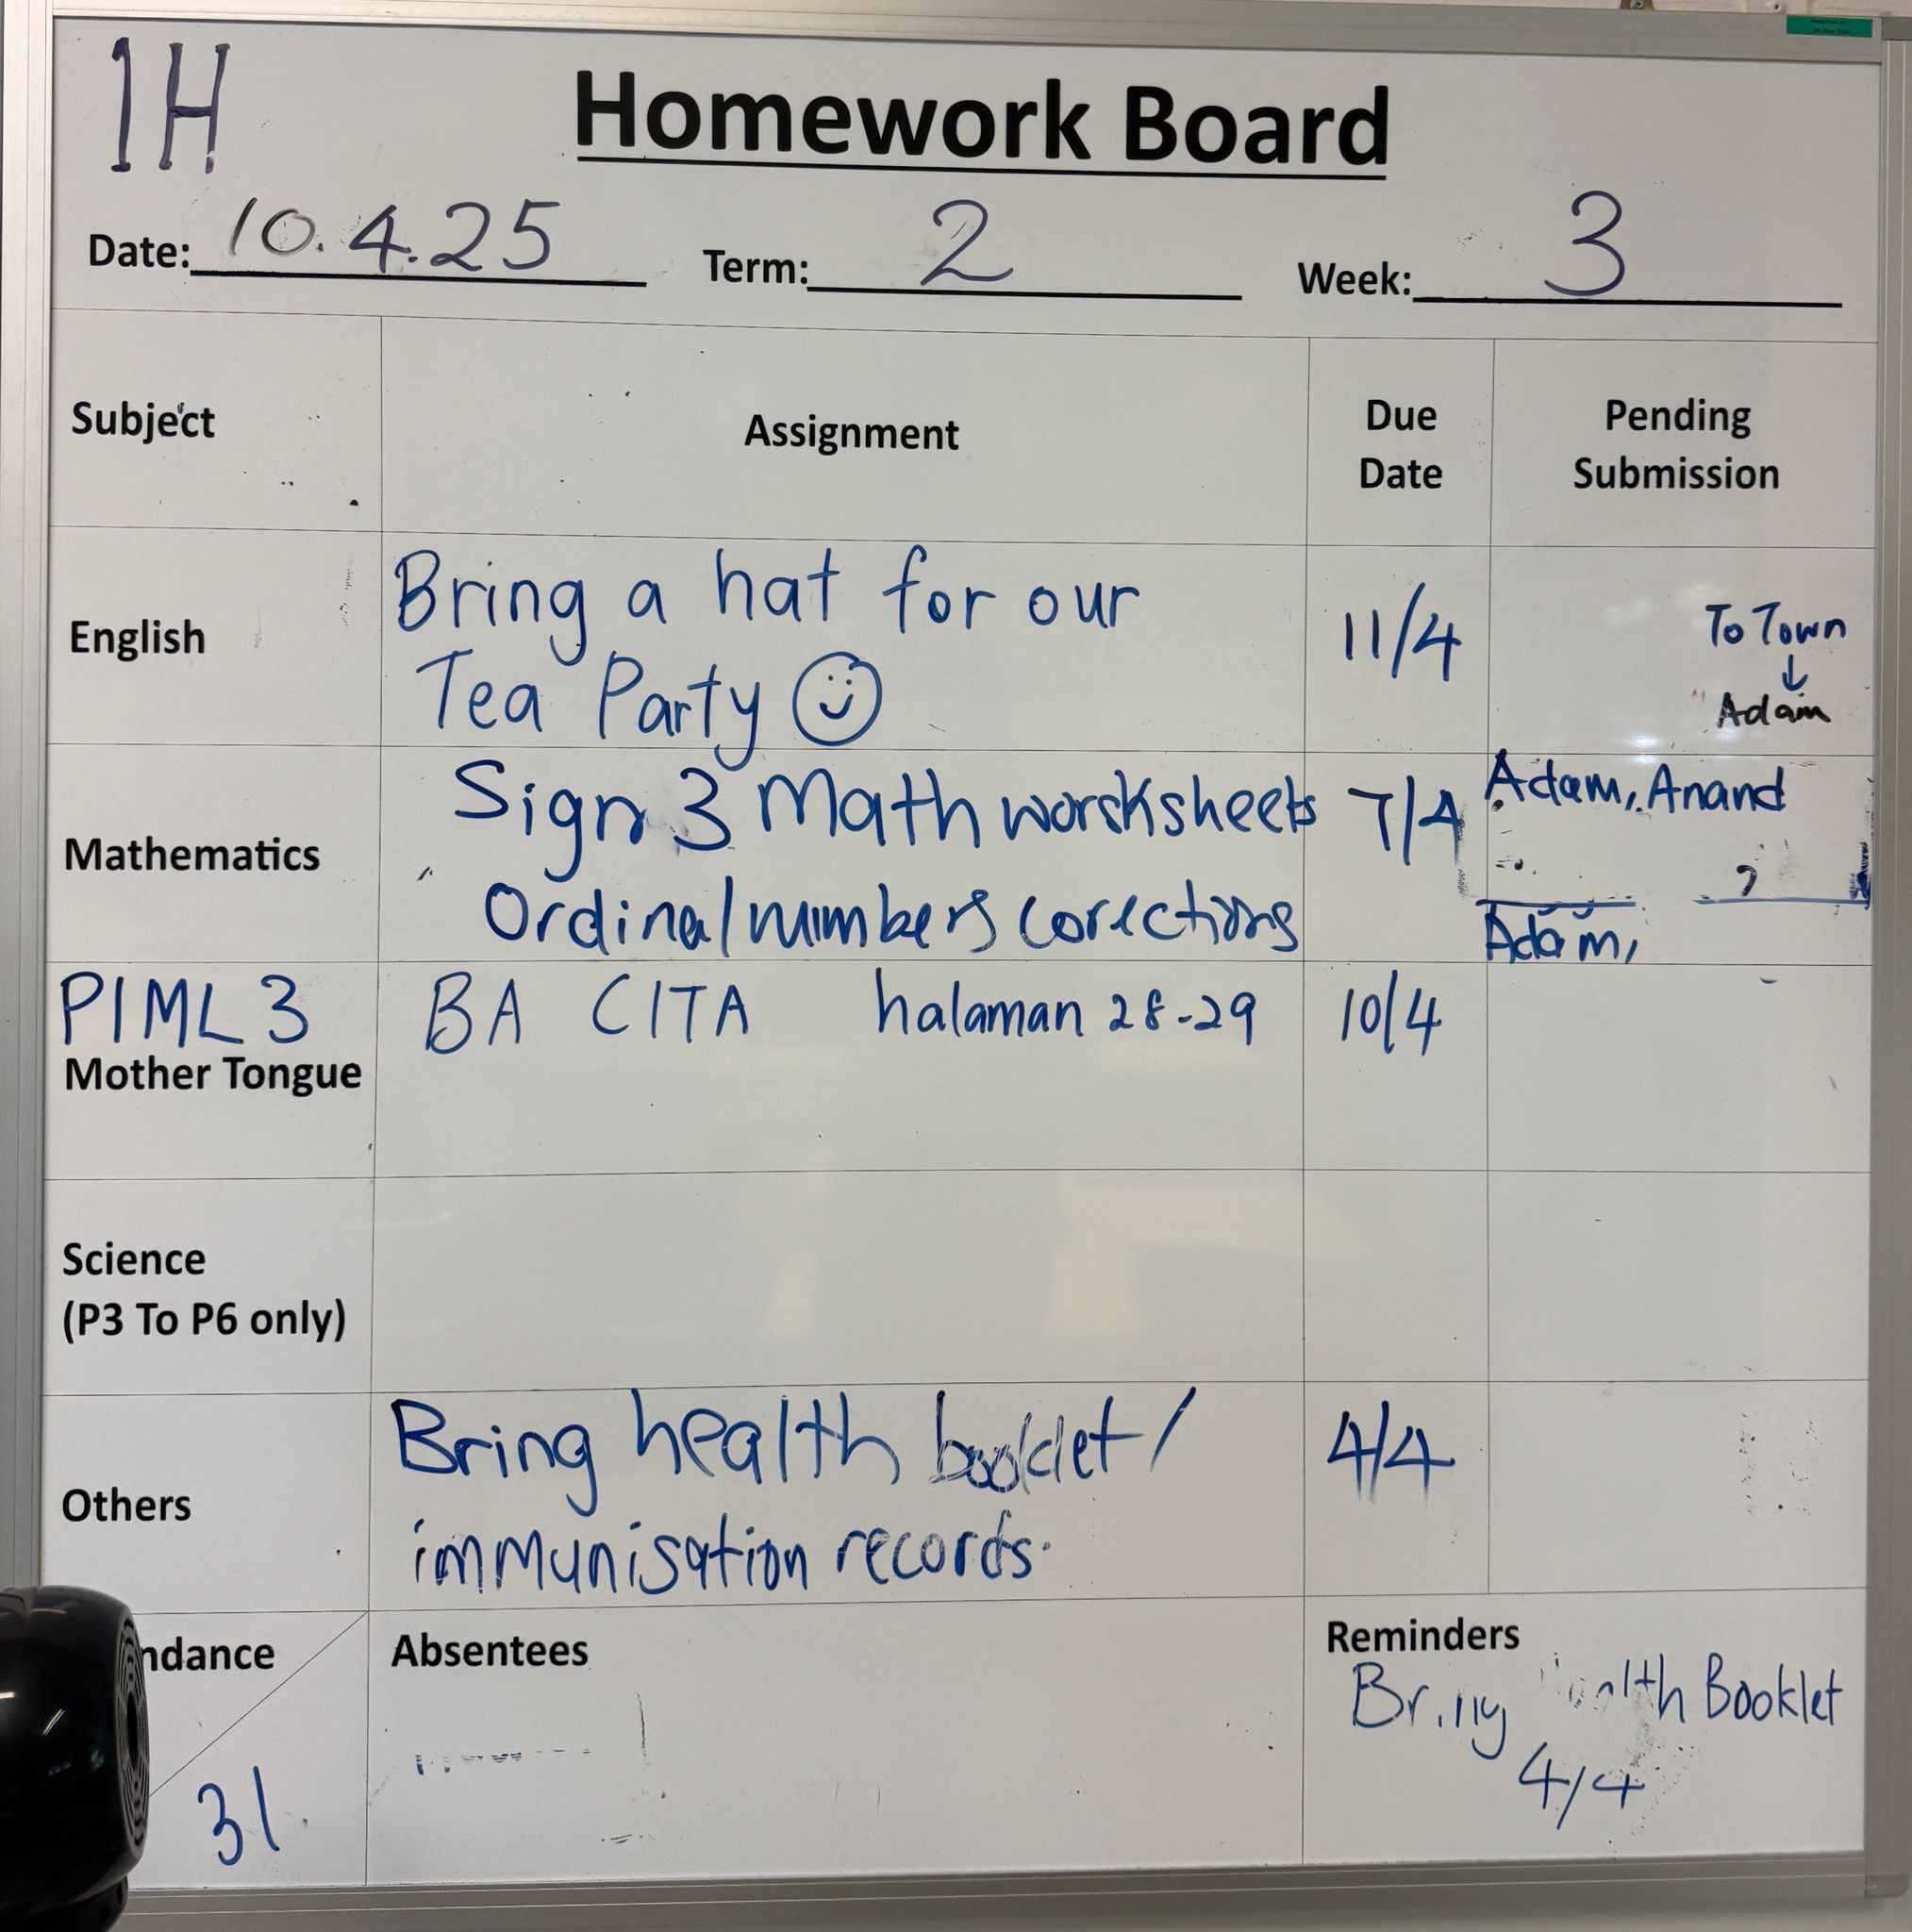 1H
Homework Board
Date: 10.4.25 Term: 2 Week: 3
Subject
Assignment
Due
Date
Pending
Submission
English
Bring a hat for our
Tea Party
11/4
To Town
↓
Adam
Mathematics
Sign 3 Math worsksheets
Ordinal numbers corections
7/4
Adam, Anand
Adam,
PIML 3
Mother Tongue
BA CITA halaman 28-29
10/4
Science
(P3 To P6 only)
Others
Bring health booklet /
immunisation records.
4/4
ndance
31
Absentees
Reminders
Bring Health Booklet
4/4